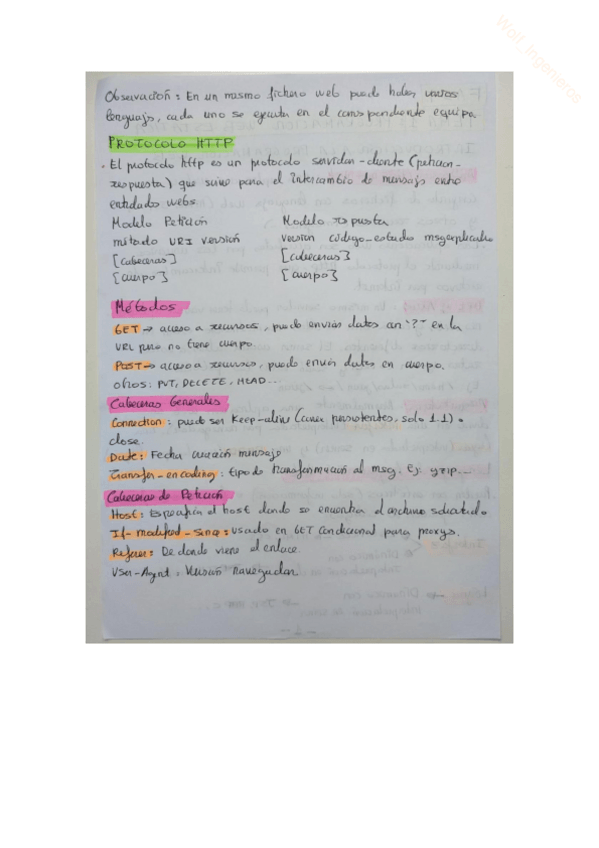 Wolf_Ingenieros
Observación: En un mismo fichero web puede haber varios
lenguajes, cada uno se ejecuta en el correspondiente equipo.
PROTOCOLO HTTP
· El protocolo http es un protocolo servidor-cliente (peticion-
respuesta) que sirve para el intercambio de mensajes entre
entidades webs.
Modelo Petición Modelo respuesta
método URI versión versión código-estado msgexplicativo
[cabeceras] [cabeceras]
[cuerpo] [cuerpo]
Métodos
GET → acceso a recursos, puede enviar datos con '?' en la
URL pero no tiene cuerpo.
POST → acceso a recursos, puede enviar datos en cuerpo.
otros: PUT, DELETE, HEAD...
Cabeceras Generales
Connection: puede ser Keep-alive (conex persistentes, solo 1.1) o
close.
Date: Fecha creación mensaje
Transfer-encoding: tipo de transformación al msg. Ej: gzip...
Cabeceras de Petición
Host: Especifica el host donde se encuentra el archivo solicitado
If-modified-since: usado en GET condicional para proxys.
Referer: De donde viene el enlace.
User-Agent: Versión navegador.
- 1 -